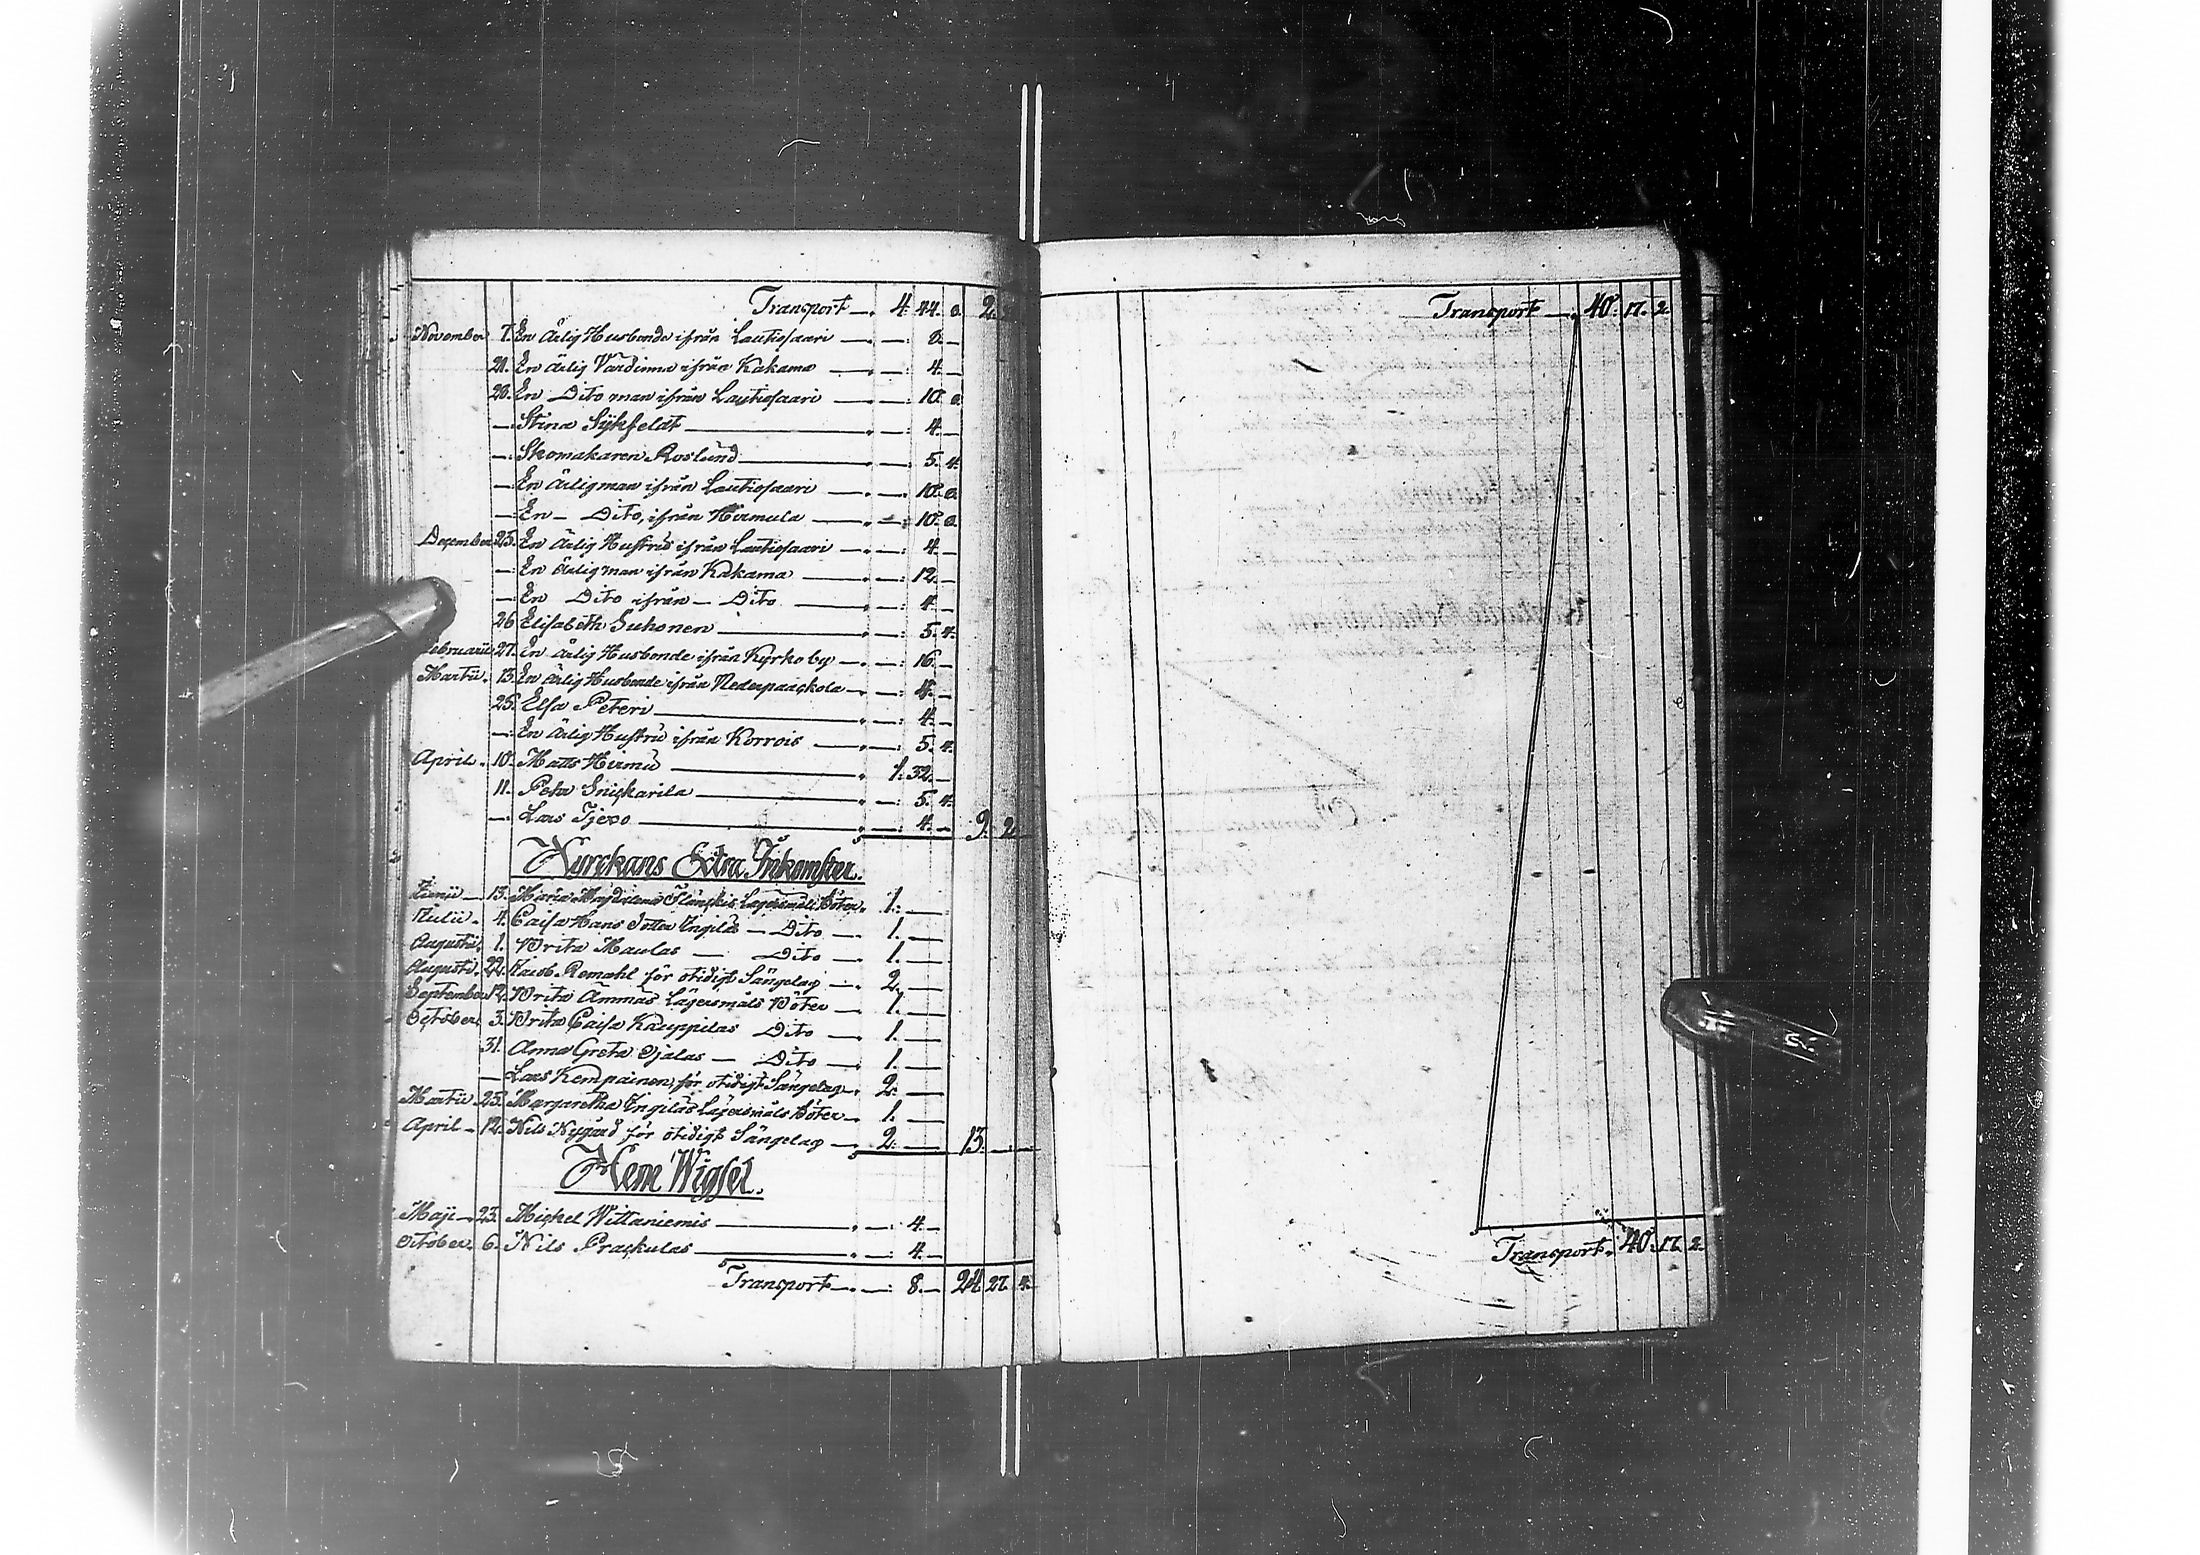 Transport — 4. 44. 8. 2.
November 7. En ärlig Husbonde ifrån Lautiosaari — 8. —
21. En ärlig Värdinna ifrån Kakama — 4. —
28. En Dito man ifrån Lautiosaari — 10. 8.
— Stina Sÿkfeldt — 4. —
— Skomakaren Roslund — 5. 4.
— En ärlig man ifrån Lautiosaari — 10. 8.
— En — Dito, ifrån Hirmula — 10. 8.
December 25. En ärlig Hustru ifrån Lautiosaari — 4. —
— En ärlig man ifrån Kakama — 12. —
— En Dito ifrån — Dito — 4. —
26 Elisabeth Suhonen — 5. 4.
Februarii 27. En ärlig Husbonde ifrån Kyrkoby — 16. —
Martii. 13. En ärlig Husbonde ifrån Nederpaackola — 4. —
25. Elsa Peteri — 4. —
— En ärlig Hustru ifrån Korrois — 5. 4.
April. 10. Matts Hirmu — 1. 32. —
11. Pehr Snickarila — 5. 4.
— Lars — 4. — 9. 2
Kyrckans Extra Inkomster.
Junii — 13. Maria Magdalena Lägersmåls Böter. 1. —
Julii. 4. Caisa Hans Dotter Ingilas — Dito — 1. —
Augusti. 1. Brita Maulas — Dito — 1. —
Augusti. 22. Jacob Remahl för otidigt Sängelag — 2. —
September 12. Brita Ammas Lägersmåls Böter — 1. —
October. 3. Brita Caisa Kauppilas Dito — 1. —
31. Anna Greta Ojalas — Dito — 1. —
— Lars Kempainen, för otidigt Sängelag — 2. —
Martii 25. Margaretha Ingilas Lägersmåls Böter — 1. —
April — 12. Nils Nygård för otidigt Sängelag — 2. — 13. —
Hem Wigsel.
Maji — 23. Mickel Wittaniemis — 4. —
October. 6. Nils Prackulas — 4. —
Transport — 8. — 24. 27. 4.
Transport — 40. 17. 2.
Transport. 40. 17. 2.